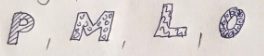 P, M, L, O